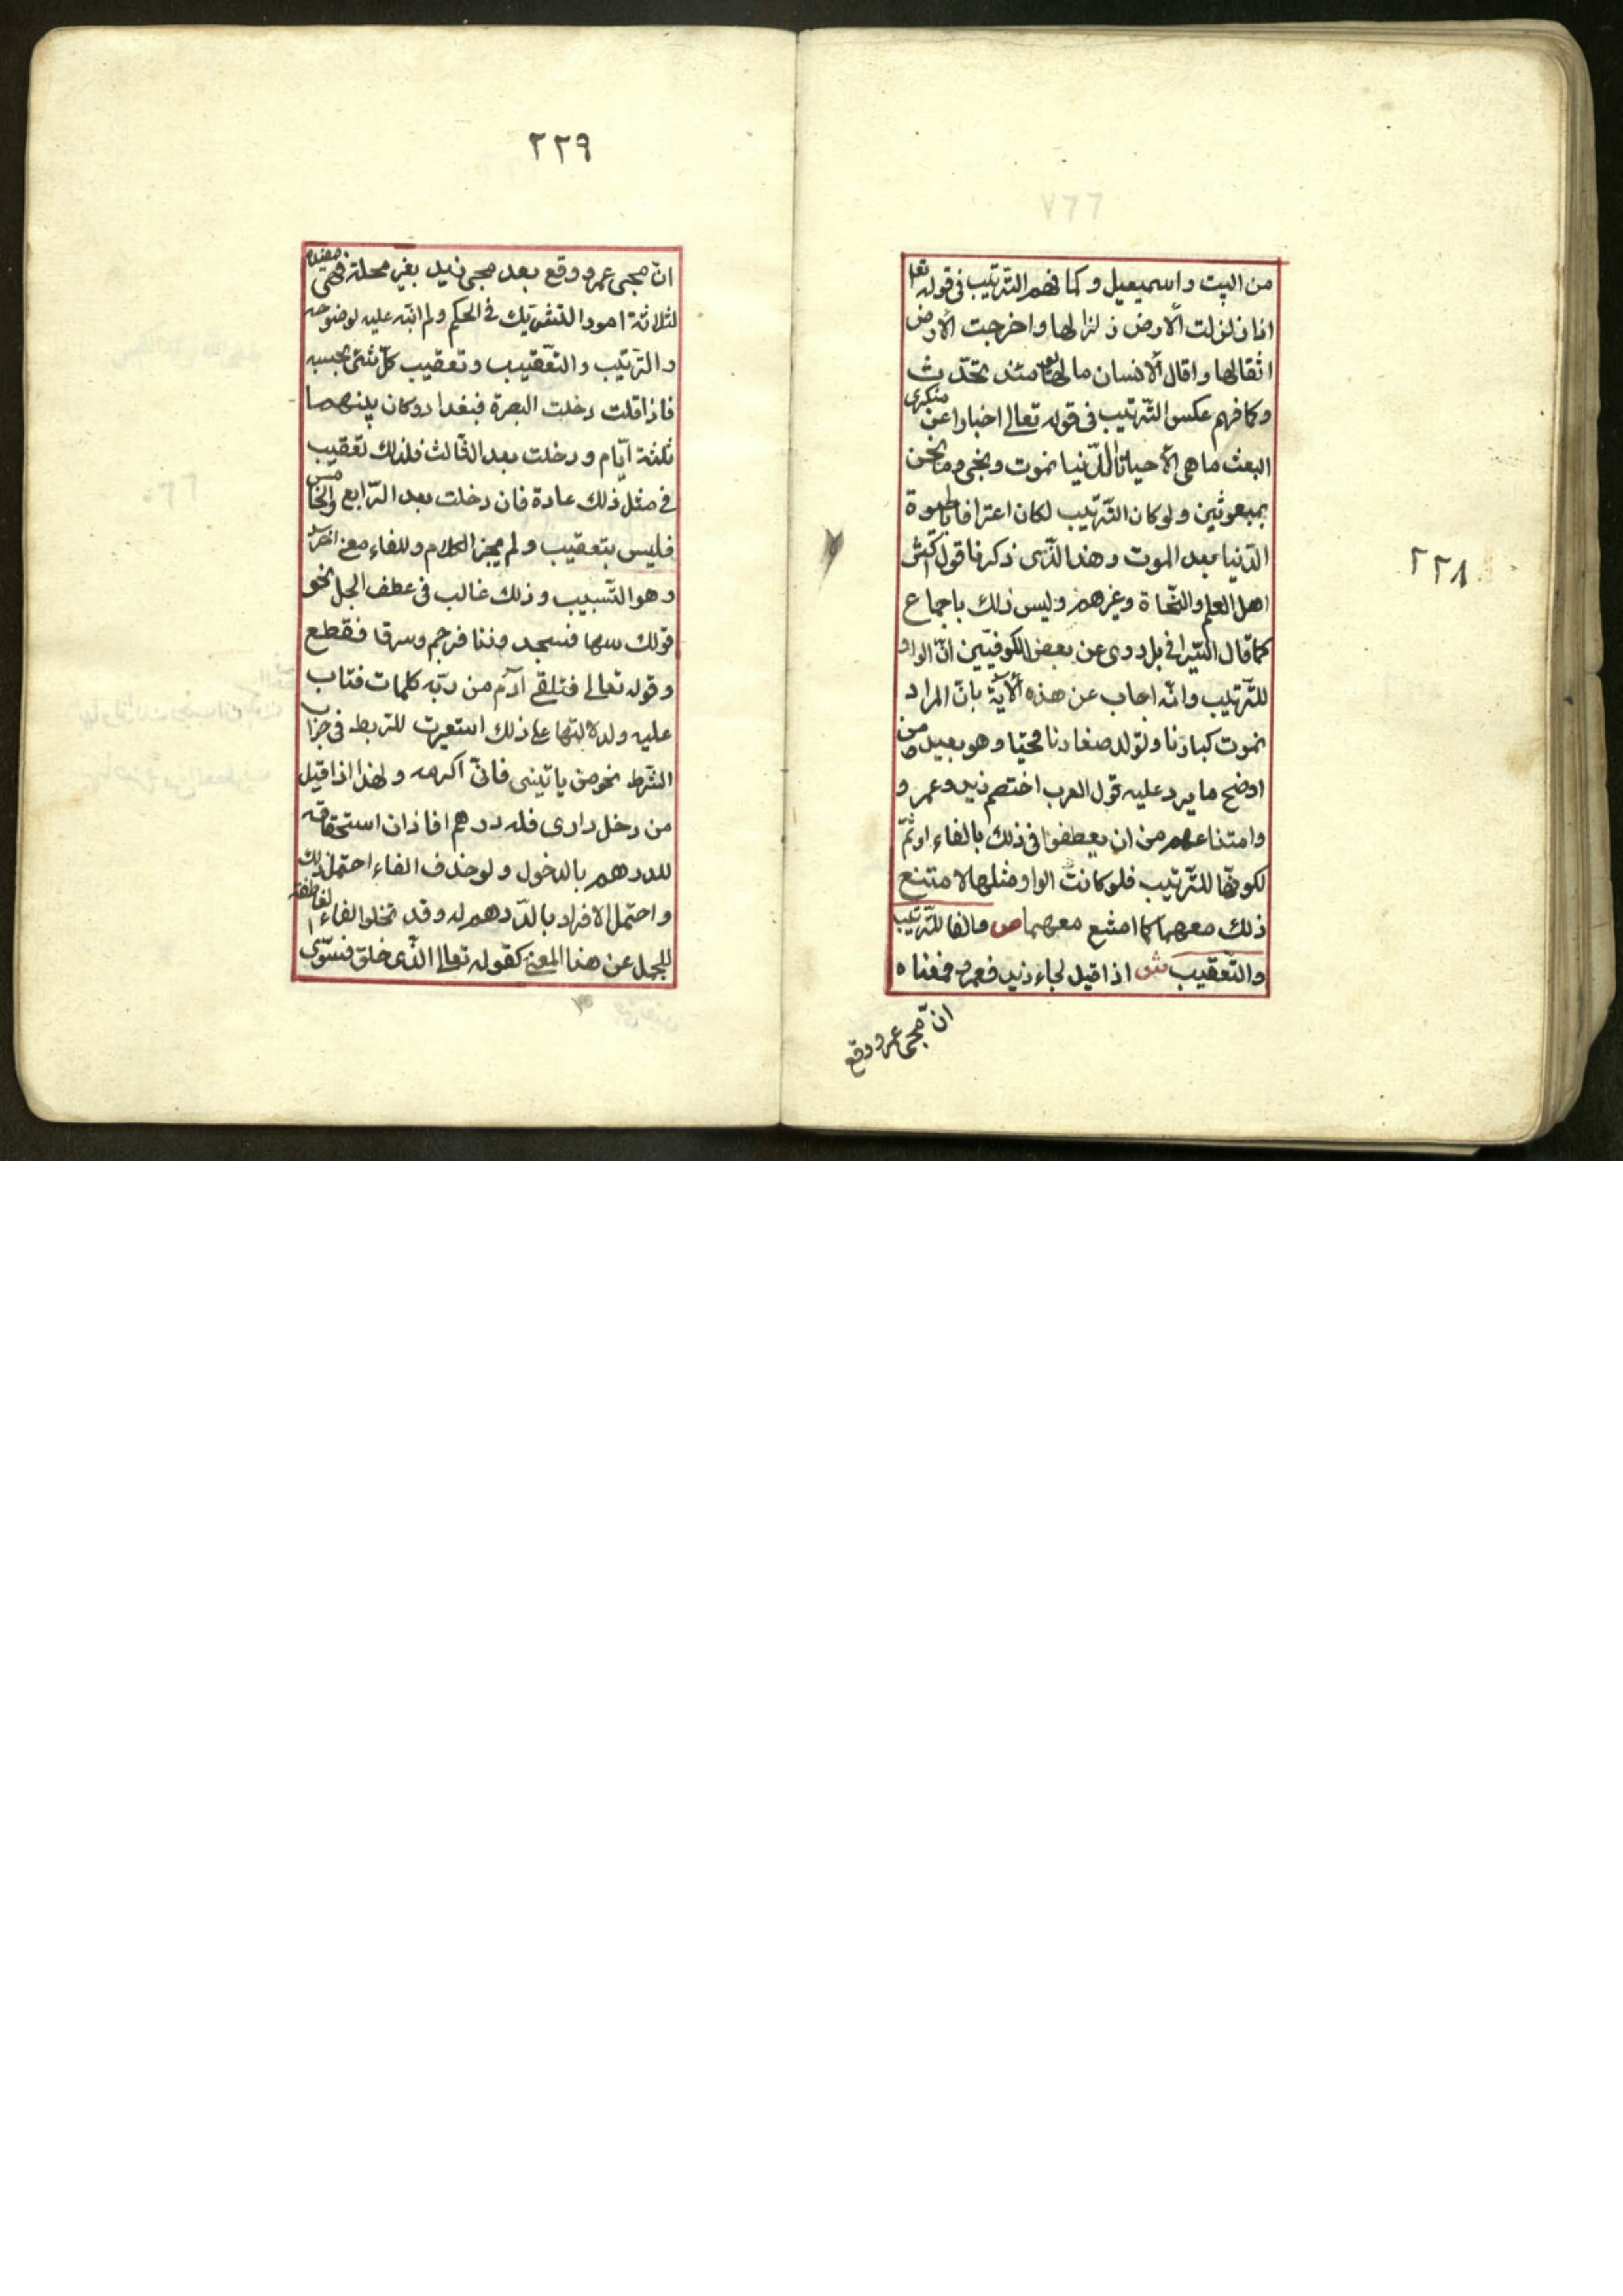 ٢٢٨
من البيت واسمعيل وكما فهم الترتيب فى قوله تعا
اذا زلزلت الأرض زلزالها واخرجت الأرض
اثقالها وقال الأنسان مالها يومئذ تحدث
وكما فهم عكس الترتيب فى قوله تعالى اخبارا عن منكرى
البعث ما هى الّا حياتنا الدّنيا نموت ونحيى وما نحن
بمبعوثين ولو كان التّرتيب لكان اعترافا بالحيوة
الدّنيا بعد الموت وهذا الّذى ذكرناه قول اكثر
اهل العلم والنّحاة وغيرهم وليس ذلك باجماع
كما قال السّيرافى بل روى عن بعض الكوفيّين انّ الواو
للتّرتيب وانّه اجاب عن هذه الأية بانّ المراد
نموت كبارنا وتولد صغارنا فنحيا وهو بعيد ومن
اوضح ما يرد عليه قول العرب اختصم زيد وعمرو
وامتناعهم من ان يعطفوا فى ذلك بالفاء او ثمّ
لكونهّا للتّرتيب فلو كانت الواو مثلها لامتنع
ذلك معهما كما امتنع معهما ص والفا للتّرتيب
والتّعقيب ش اذا قيل لجاء زيد فعمرو فمعناه
انّ مجى عمرو وقع
٢٢٩
انّ مجى عمرو وقع بعد مجى زيد بغير مهلة فهى مفيدة
لثلاثة امور التشريك فى الحكم ولم انبّه عليه لوضوحه
والتّرتيب والتّعقيب وتعقيب كلّ شئ بحسبه
فاذا قلت دخلت البصرة فبغداد وكان بينهما
ثلثة ايّام ودخلت بعد الثّالث فذلك تعقيب
فى مثل ذلك عادة فان دخلت بعد الرّابع والخامس
فليس بتعقيب ولم يجز الكلام وللفاء معنى اخر
وهو التّسبيب وذلك غالب فى عطف الجمل نحو
قولك سها فسجد وزنا فرجم وسرق فقطع
وقوله تعالى فتلقى آدم من ربّه كلمات فتاب
عليه ولدلالتها على ذلك استعيرت للربط فى جواب
الشّرط نحو من ياتينى فانّى اكرمه ولهذا اذا قيل
من دخل دارى فله درهم افاذ ان استحقاقه
للدرهم بالدخول ولو حذف الفاء احتمل ذلك
واحتمل الافراد بالدّرهم له وقد تخلوا الفاء العاطفة
للجمل عن هذا المعنى كقوله تعالى الّذى خلق فسوّى